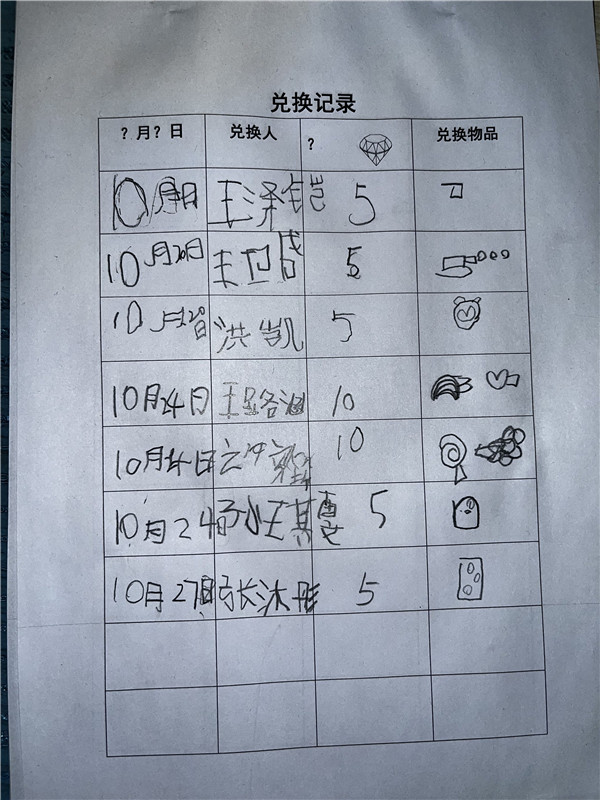 兑换记录
？月？日 兑换人 ？ 兑换物品
10月 日 王泽铠 5
10月20日 王卫 5
10月22日 洪凯 5
10月24日 王路涵 10
10月24日 10
10月24日 孙王其 5
10月27日 张沐彤 5